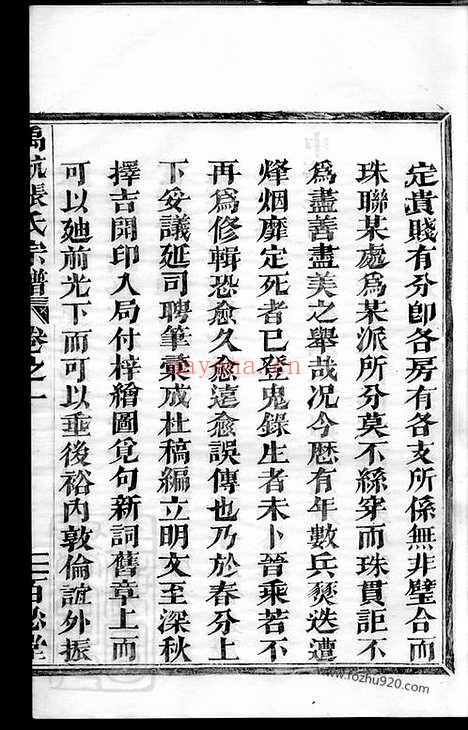 定貴賤有分卽各房有各支所係無非璧合而
珠聯某處爲某派所分莫不絲穿而珠貫詎不
爲盡善盡美之舉哉况今歷有年數兵燹迭遭
烽烟靡定死者已登鬼錄生者未卜晉乘若不
再爲修輯恐愈久愈遠愈誤傳也乃於春分上
下妥議延司聘筆彙成杜稿編立明文至深秋
擇吉開印入局付梓繪圖覓句新詞舊章上而
可以廸前光下而可以垂後裕內敦倫誼外振
禹航張氏宗譜 卷之一 百忍堂
nayona.cn
www.fozhu920.com